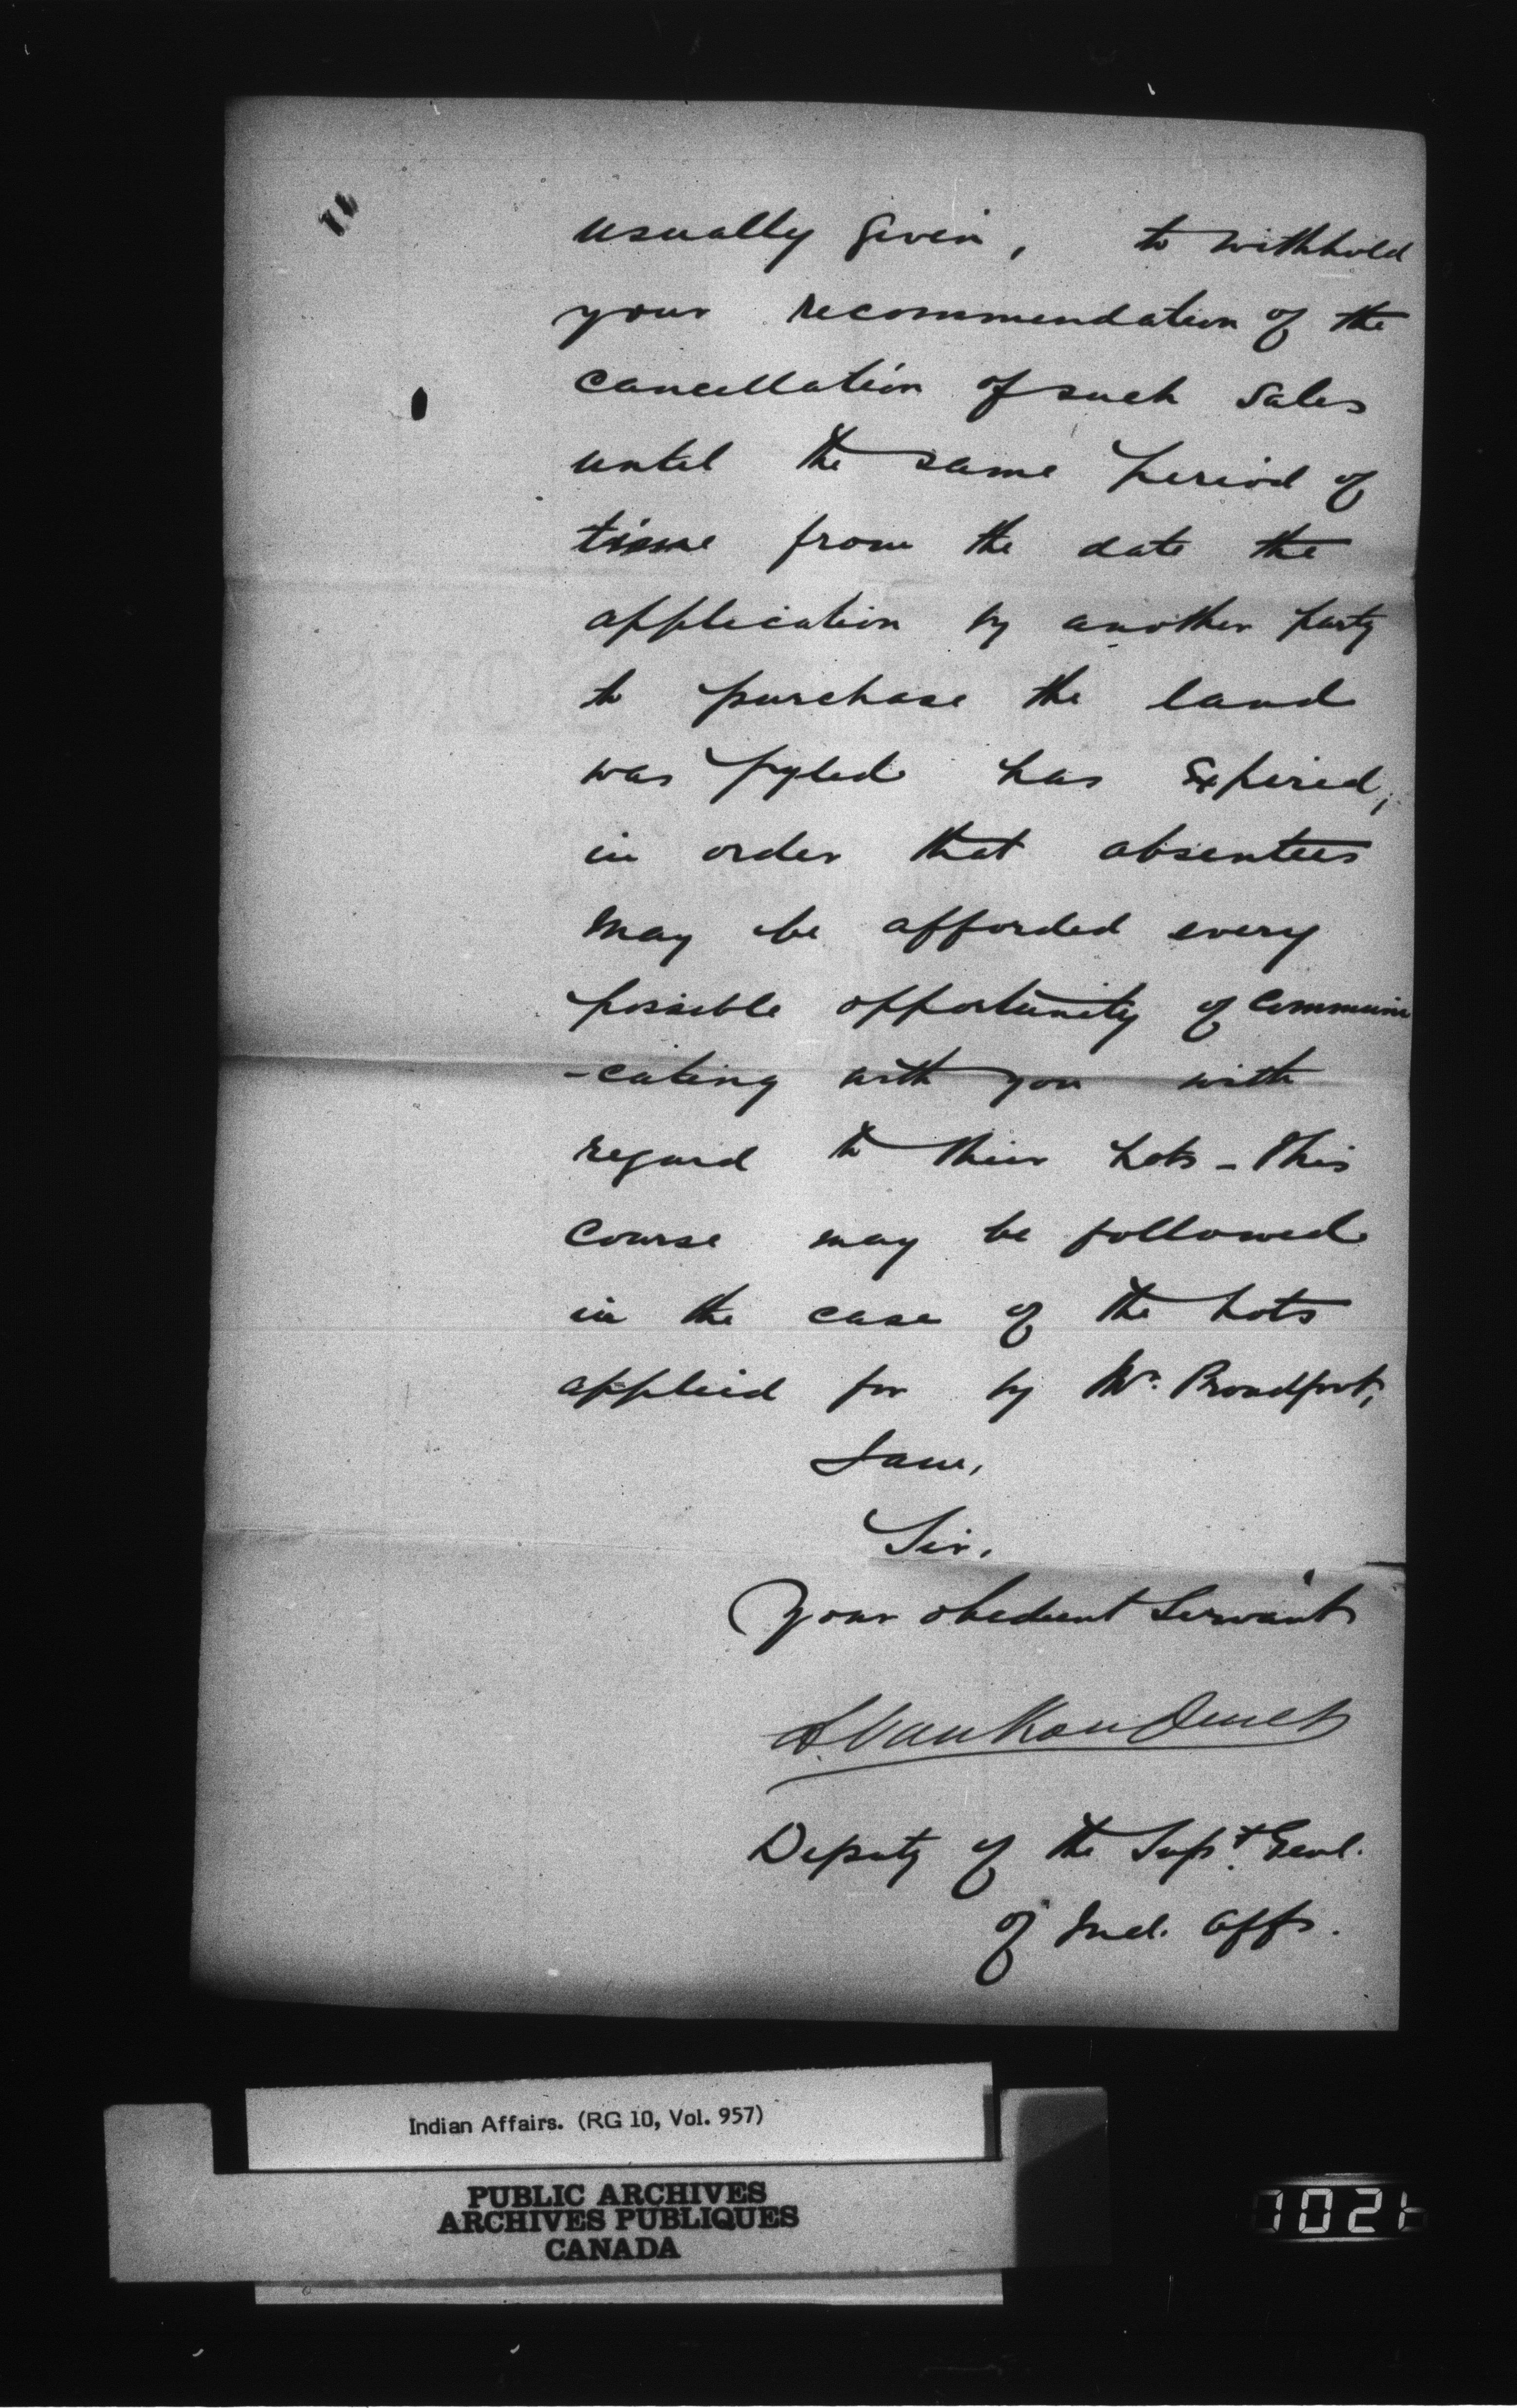 usually given, to withhold
your recommendation of the
cancellation of such Sales
until the same period of
time from the date the
application by another party
to purchase the land
was fyled has Expired,
in order that absentees
may be afforded every
possible opportunity of Communi
-cating with you with
regard to their Lots - This
course may be followed
in the case of the Lots
applied for by Mr. Broadfoot,
I am,
Sir,
Your obedient Servant
L. VanKoughnet
Deputy of the Supt. Genl.
of Ind. Affs.
Indian Affairs. (RG 10, Vol. 957)
PUBLIC ARCHIVES
ARCHIVES PUBLIQUES
CANADA